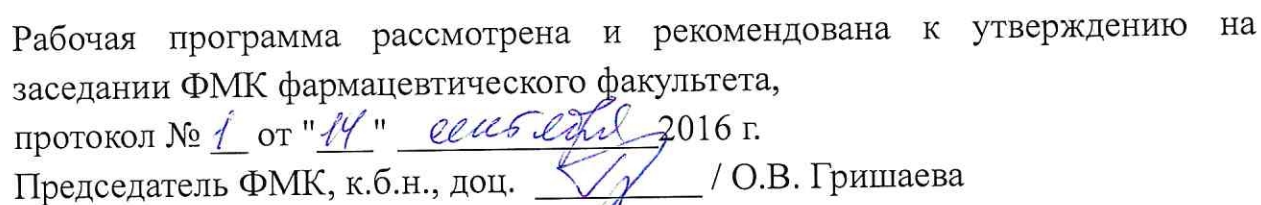 Рабочая программа рассмотрена и рекомендована к утверждению на
заседании ФМК фармацевтического факультета,
протокол № 1 от "14" сентября 2016 г.
Председатель ФМК, к.б.н., доц. / О.В. Гришаева